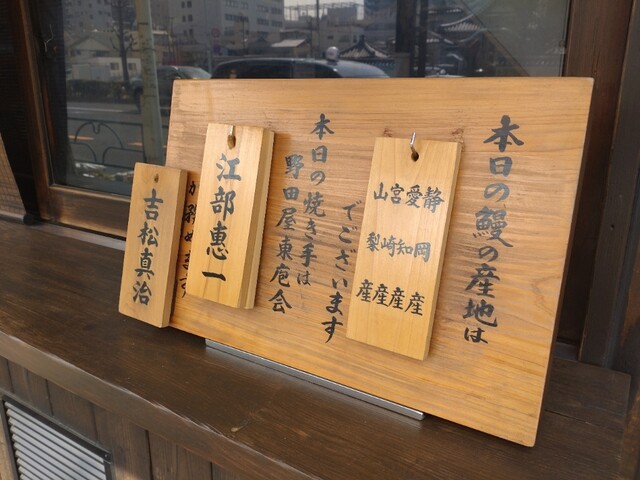 本日の鰻の産地は
静岡産
愛知産
宮崎産
山梨産
でございます
本日の焼き手は
野田屋東庖会
江部惠一
が
ます
吉松真治